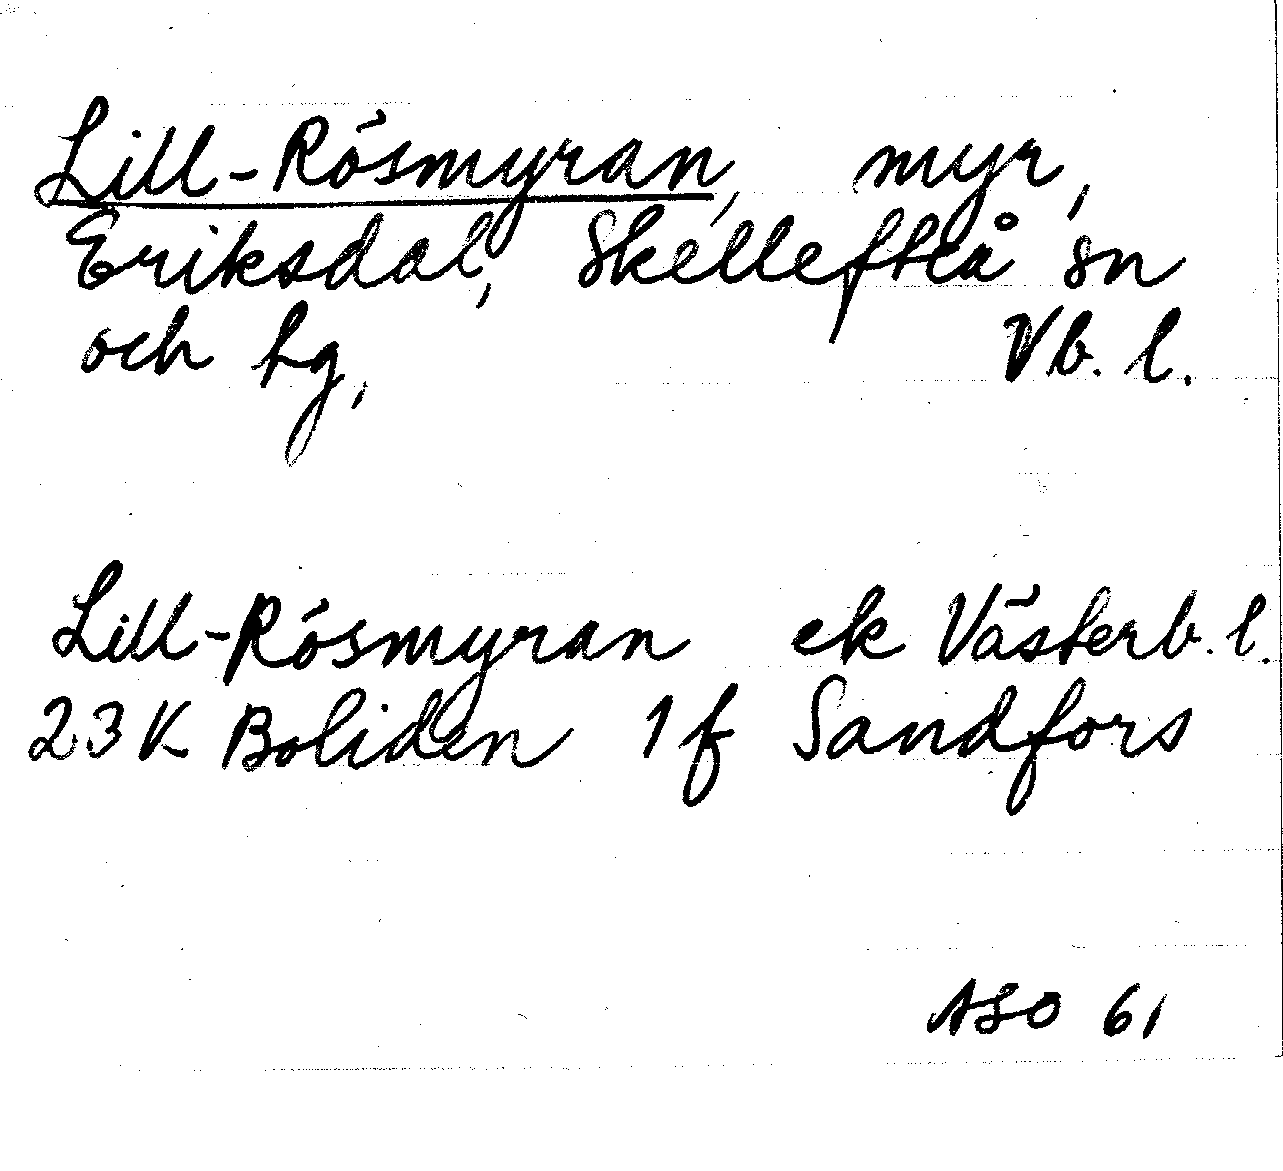 Lill-Rösmyran, myr,
Eriksdal, Skellefteå sn
och hg, Vb. l.
Lill-Rösmyran ek Västerb. l.
23 K Boliden 1 f Sandfors
ASO 61